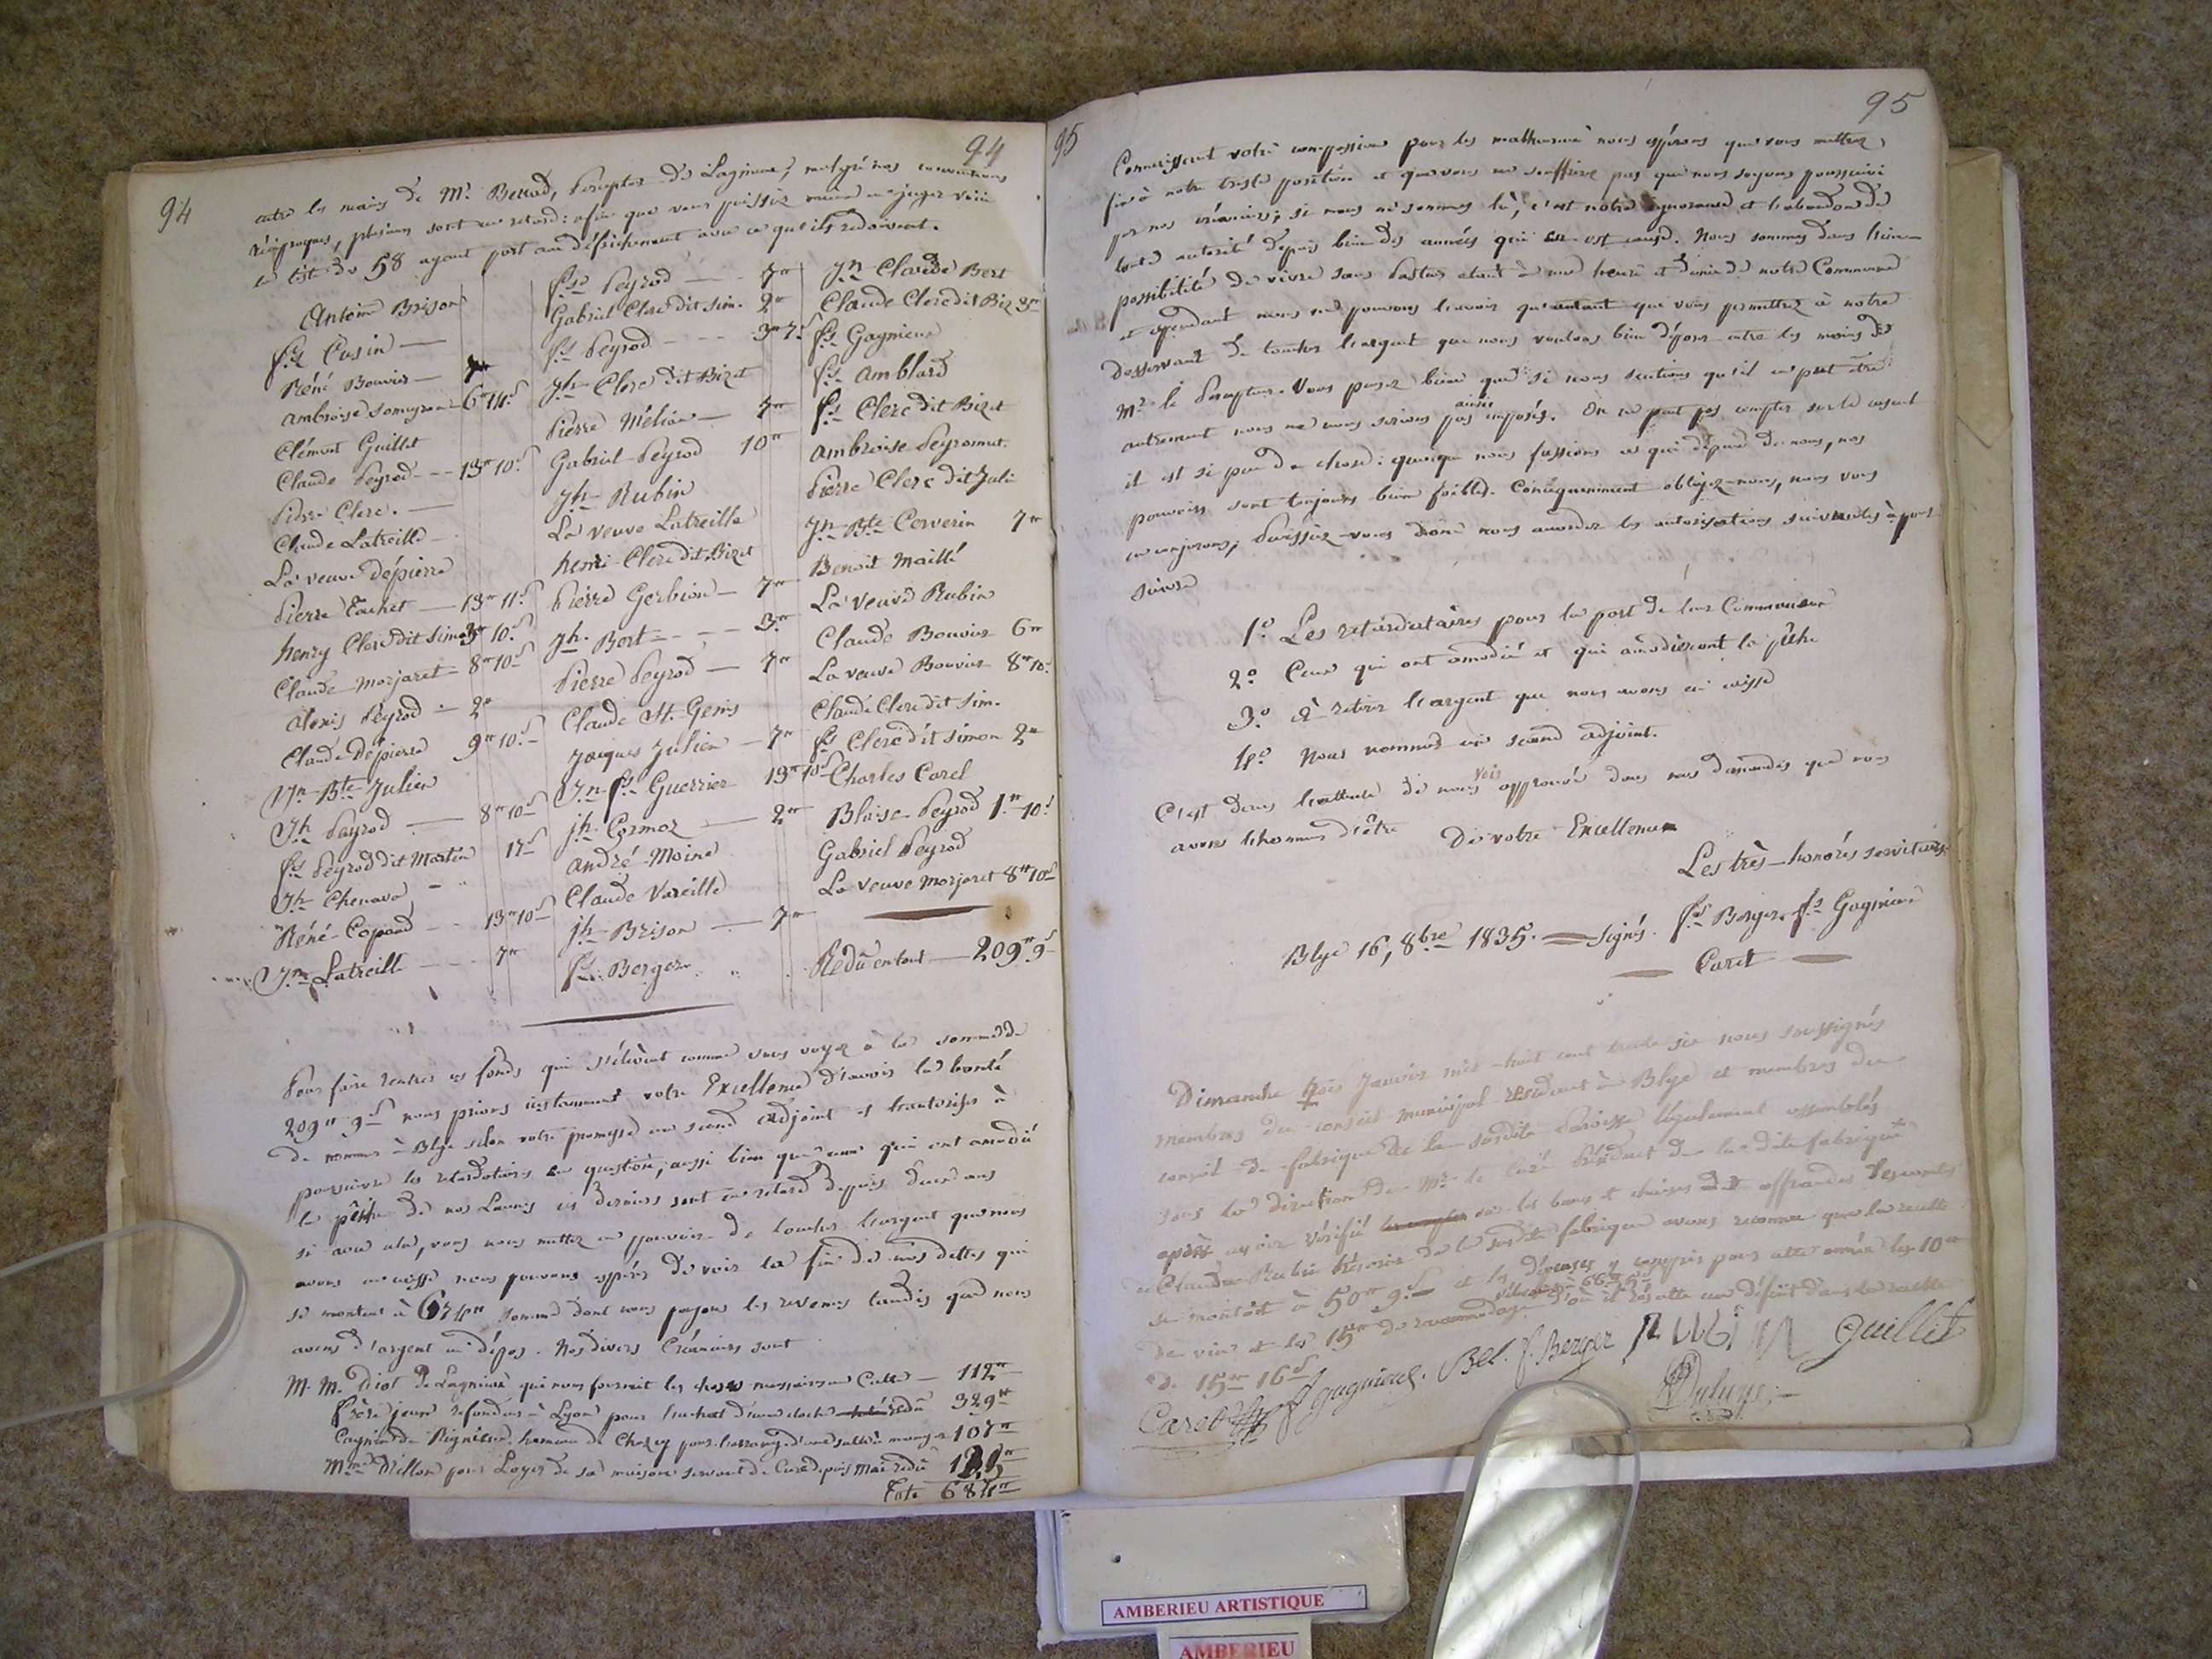 94
94
entre les mains de Mr. Bettod, Percepteur de Lagnieux, malgré nos conventions
réciproques, plusieurs sont en retard: afin que vous puissiez mieux en juger voici
la liste des 58 ayant part au défrichement avec ce qu'ils redoivent.
Antoine Brison
fçs Cusin —
Réné Bouvier —
Ambroise 6tt 14s
Clément Guillet
Claude Peyrod -- 13tt 10s
Pierre Clerc. —
Claude Latreille —
La veuve Dépierre
Pierre Tachet — 13tt 11s
henry Clerc dit Simon 3tt 10s
Claude Morjaret — 8tt 10s
Alexis Peyrod — 2tt
Claude Dépierre 9tt 10s
Jn Bte Julien
Jh Payrod — 8tt 10s
fçs Peyrod dit Martin 17s
Jh Chenava
Réné Copard -- 13tt 10s
Jn Latreille --- 7tt
fçs Peyrod — 7tt
Gabriel Clerc dit Sim. 2tt
fçs Peyrod --- 3tt 7s
Jh Clerc dit Bizet
Pierre Mélian — 7tt
Gabriel Peyrod 10tt
Jh Rubin
La veuve Latreille
henri Clerc dit Bizet
Pierre Gerbion — 7tt
Jh. Bert --- 3tt
Pierre Peyrod — 7tt
Claude St. Genis
Jacques Julien — 7tt
Jn fçs Guerrier 13tt 10s
jh Cormoz — 2tt
André Moine
Claude Vareille
jh Brison — 7tt
fçs Berger
Jn Claude Bert
Claude Clerc dit Biz 3tt
fçs Gagnieux
fçs Amblard
fçs Clerc dit Bizet
Ambroise Peyromat
Pierre Clerc dit Juli
Jn Bte Cerverin 7tt
Benoit Maillé
La Veuve Rubin
Claude Bouvier 6tt
La veuve Bouvier 8tt 10s
Claude Clerc dit Sim.
fçs Clerc dit Simon 2tt
Charles Carel
Blaise Peyrod 1tt 10s
Gabriel Peyrod
La veuve Morjaret 8tt 10s
Redû en tout — 209tt 9s
Pour faire rentrer ces fonds qui s'élèvent comme vous voyez à la somme de
209tt 9s nous prions instamment votre Excellence d'avoir la bonté
de nommer à Blye selon votre promesse un second adjoint et l'autoriser à
poursuivre les retardataires en question, aussi bien que ceux qui ont amodié
la pêche de nos ces derniers sont en retard depuis deux ans
si avec cela, vous nous mettez en pouvoir de toucher l'argent que nous
avons en caisse nous pouvons espérer de voir la fin de nos dettes qui
se montent à 674tt somme dont nous payons les revenus tandis que nous
avons d'argent en dépos. Nos divers Créanciers sont
M. M. Diot de Lagnieux qui nous fournit les choses nécessaires au Culte — 112tt
Frère jeune refondeur à Lyon pour l'achat d'une cloche redû 329tt
hameau de Chazey pour l'arrange d'une salle à manger 107tt
Mme Millon pour Loyer de sa maison servant de Cure depuis Mai redû
Tote 684tt
95
95
Connaissant votre compassion pour les malheureux nous espérons que vous mettrez
fin à notre triste position et que vous ne souffrirez pas que nous soyons poursuivi
par nos créanciers; si nous en sommes là, c'est notre ignorance et l'abandon de
toute autorité depuis bien des années qui en est cause. Nous sommes dans l'im-
possibilité de vivre sans Pasteur étant à une heure et demie de notre Commune
et cependant nous ne pouvons l'avoir qu'autant que vous permettrez à notre
Desservant de toucher l'argent que nous voulons bien déposer entre les mains de
Mr. le Percepteur. Vous pensez bien que si nous sentions qu'il en put être
autrement nous ne nous serions pas ainsi imposés. On ne peut pas compter sur le casuel
il est si peu de chose: quoique nous fassions ce qui dépend de nous, nos
pouvoirs sont toujours bien foibles. Conséquemment obligez-nous, nous vous
en conjurons; Puissiez-vous donc nous accorder les autorisations suivantes à pour
suivre
1.o Les retardataires pour la part de leur Commune
2.o Ceux qui ont amodié et qui amodieront la pêche
3.o à retirer l'argent que nous avons en caisse
4.o Nous nommer un second adjoint.
C'est dans l'attente de nous voir approuvés dans nos demandes que nous
avons l'honneur d'être De votre Excellence
Les très-honorés serviteurs
Blye 16, 8bre 1835. — Signés. fçs Berger. fçs Gagnieux
— Caret —
Dimanche trois Janvier mil-huit cent trente six nous soussignés
membres du conseil municipal résidant à Blye et membres du
conseil de fabrique de la susdite Paroisse légalement assemblés
sous la direction de Mr. le Curé Président de la dite fabrique
après avoir vérifié sur les bancs et chaises et offrandes les comptes
de Claude Rubin trésorier de la susdite fabrique avons reconnu que la recette
se montoit à 50tt 9s et les dépenses y compris pour cette année les 10tt
de vin et les 15tt de raccommodage s'élevoient à 66tt 5s d'où il résulte un déficit dans la recette
de 15tt 16s
Caret f gagnieux. Bel. f. Berger RUBIN Guillet
AMBERIEU ARTISTIQUE
AMBERIEU